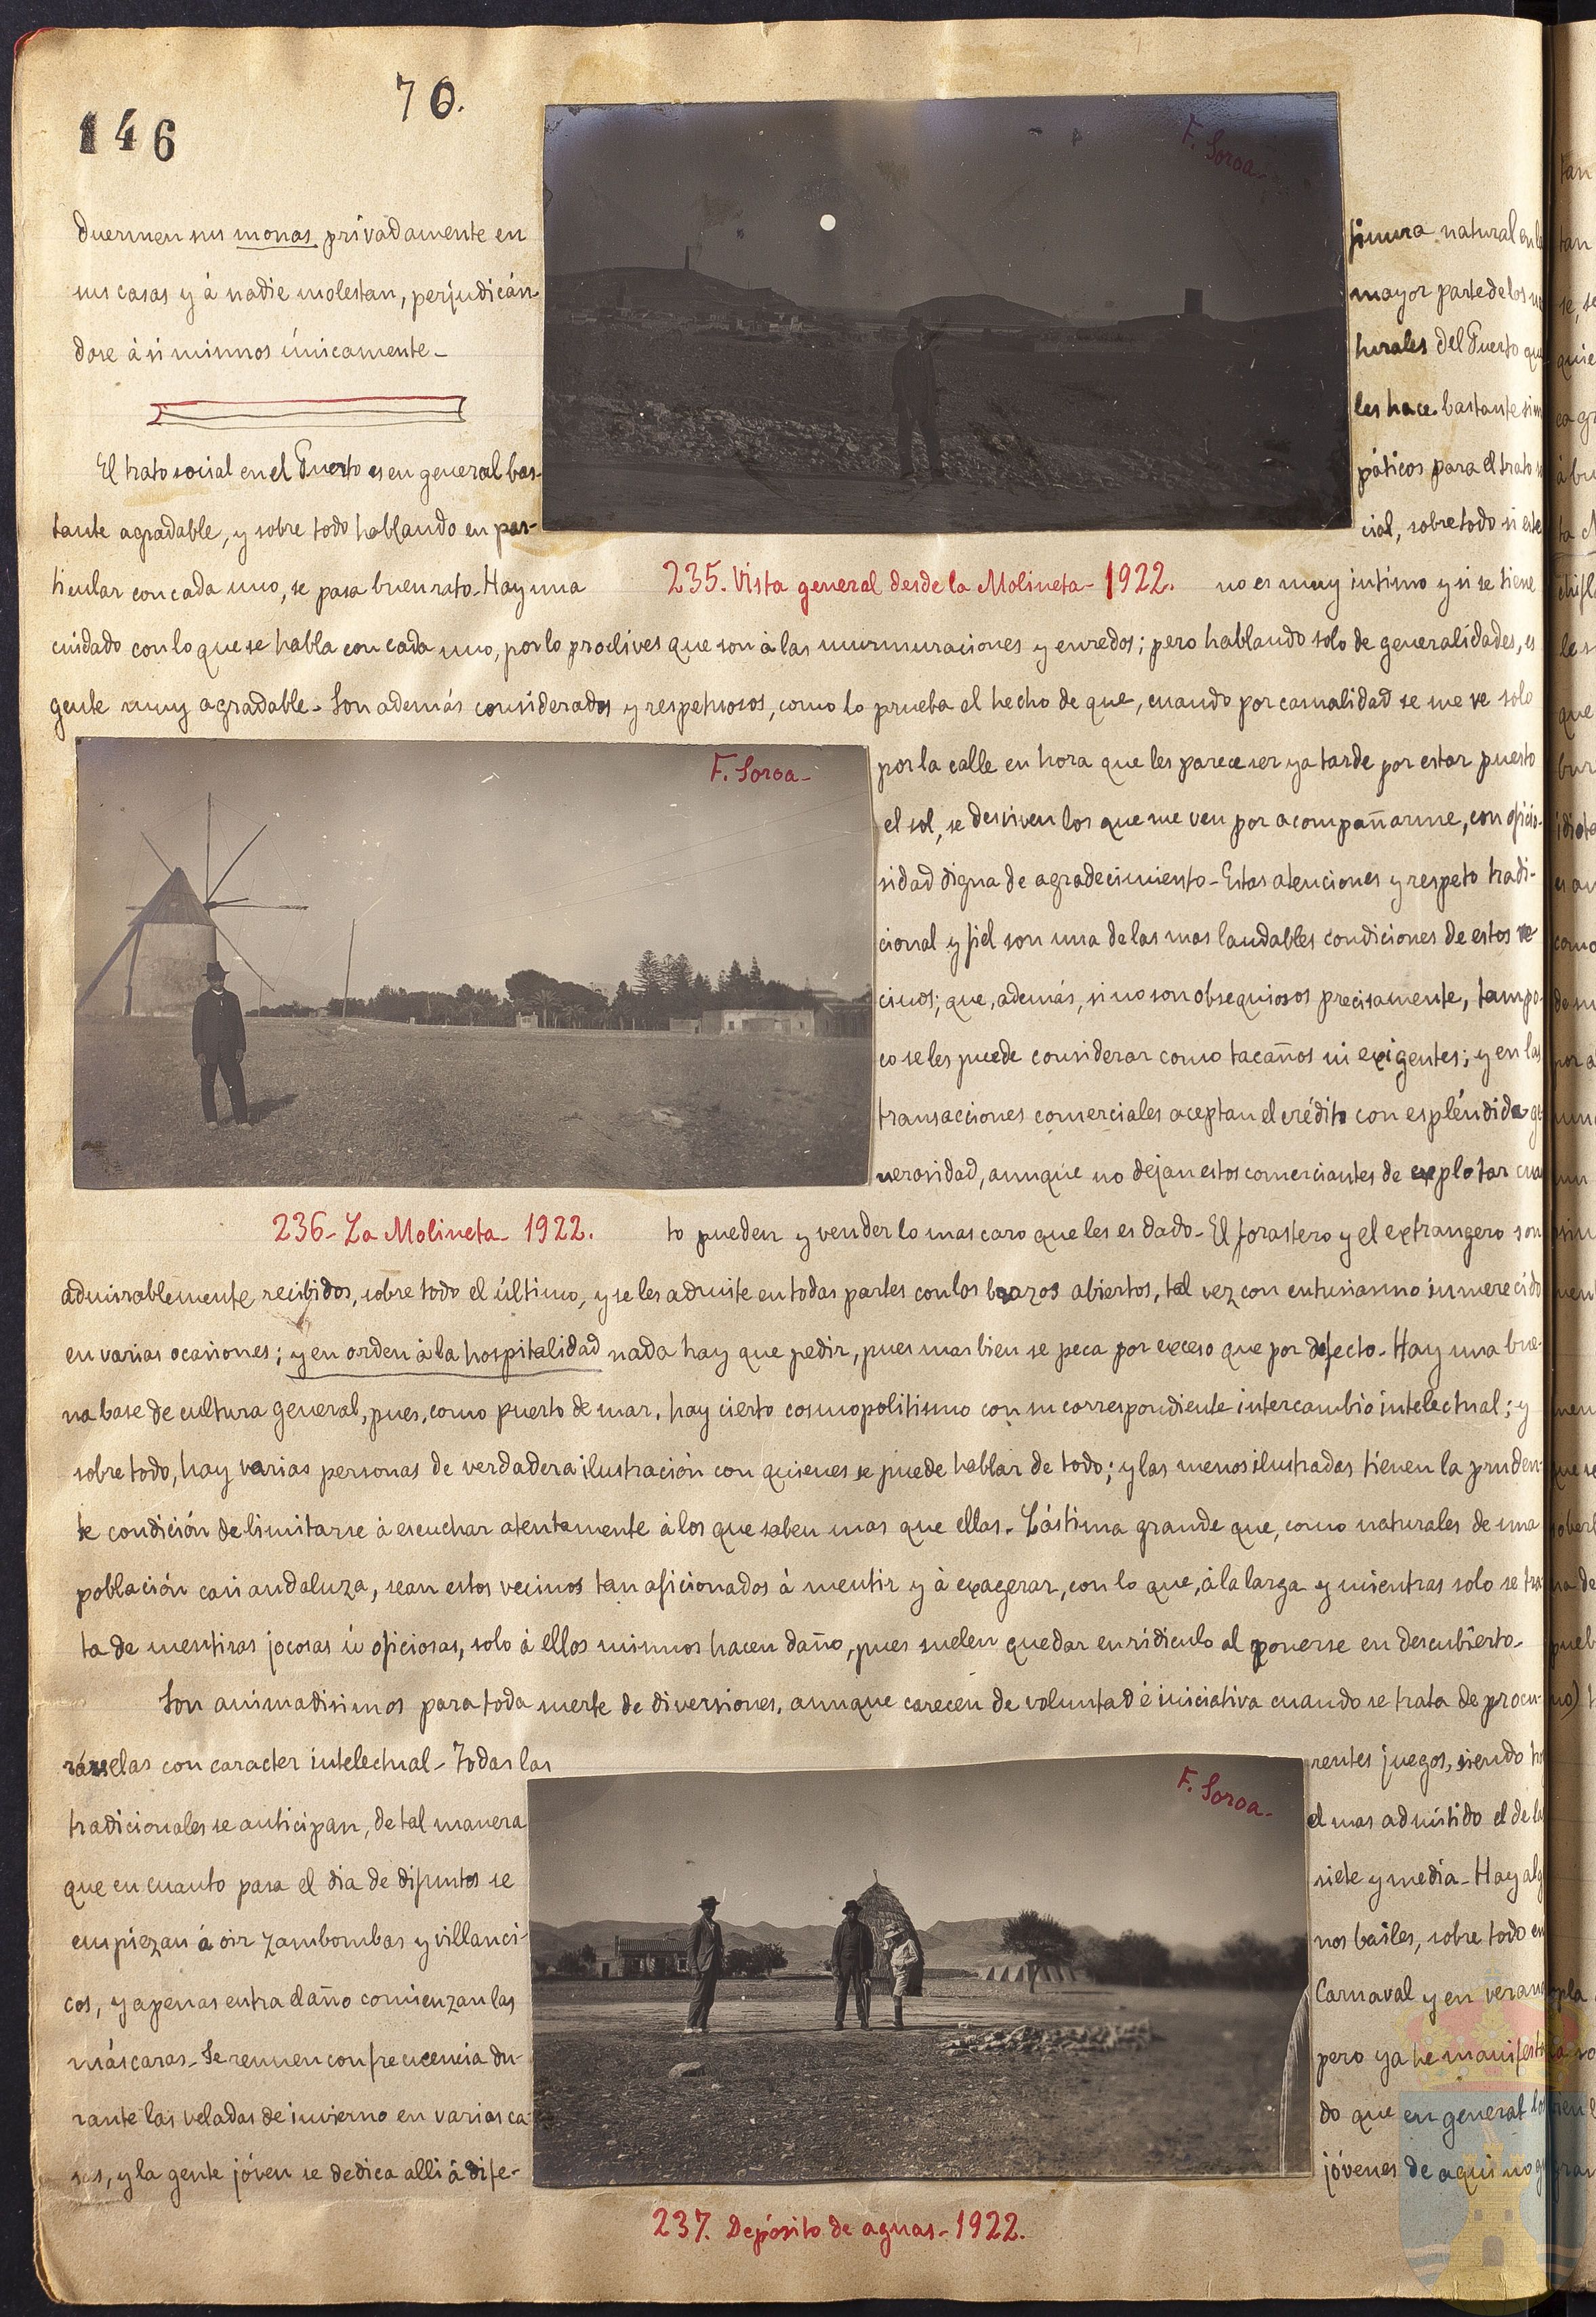 146
70.
F. Soroa-
duermen sus monas privadamente en
sus casas y á nadie molestan, perjudicán-
dose á si mismos únicamente-
El trato social en el Puerto es en general bas-
tante agradable, y sobre todo hablando en par-
ticular con cada uno, se pasa buen rato- Hay una
finura natural en la
mayor parte de los na
turales del Puerto que
les hace bastante sim
páticos para el trato so
cial, sobre todo si este
235. Vista general desde la Molineta- 1922.
no es muy intimo y si se tiene
cuidado con lo que se habla con cada uno, por lo proclives que son á las murmuraciones y enredos; pero hablando solo de generalidades, es
gente muy agradable- Son además considerados y respetuosos, como lo prueba el hecho de que, cuando por casualidad se me ve solo
F. Soroa-
por la calle en hora que les parece ser ya tarde por estar puesto
el sol, se desviven los que me ven por acompañarme, con oficio-
sidad digna de agradecimiento- Estas atenciones y respeto tradi-
cional y fiel son una de las mas laudables condiciones de estos ve-
cinos; que, además, si no son obsequiosos precisamente, tampo-
co se les puede considerar como tacaños ni exigentes; y en las
transacciones comerciales aceptan el crédito con espléndida ge-
nerosidad, aunque no dejan estos comerciantes de explotar cuan
236- La Molineta- 1922.
to pueden y vender lo mas caro que les es dado- El forastero y el extrangero son
admirablemente recibidos, sobre todo el último, y se les admite en todas partes con los brazos abiertos, tal vez con entusiasmo inmerecido
en varias ocasiones; y en orden á la hospitalidad nada hay que pedir, pues mas bien se peca por exceso que por defecto- Hay una bue-
na base de cultura general, pues, como puerto de mar, hay cierto cosmopolitismo con su correspondiente intercambio intelectual; y
sobre todo, hay varias personas de verdadera ilustración con quienes se puede hablar de todo; y las menos ilustradas tienen la pruden-
te condición de limitarse á escuchar atentamente á los que saben mas que ellas- Lástima grande que, como naturales de una
población casi andaluza, sean estos vecinos tan aficionados á mentir y á exagerar, con lo que, á la larga y mientras solo se tra
ta de mentiras jocosas ú oficiosas, solo á ellos mismos hacen daño, pues suelen quedar en ridiculo al ponerse en descubierto-
Son animadisimos para toda suerte de diversiones, aunque carecen de voluntad é iniciativa cuando se trata de procu-
rárselas con caracter intelectual- Todas las
tradicionales se anticipan, de tal manera
que en cuanto pasa el dia de difuntos se
empiezan á oir zambombas y villanci-
cos, y apenas entra el año comienzan las
máscaras- Se reunen con frecuencia du-
rante las veladas de invierno en varias ca-
sas, y la gente jóven se dedica alli á dife-
F. Soroa-
rentes juegos, siendo hoy
el mas admitido el de las
siete y media- Hay algu
nos bailes, sobre todo en
Carnaval y en verano
pero ya he manifesta
do que en general los
jóvenes de aqui no
237. Depósito de aguas- 1922.